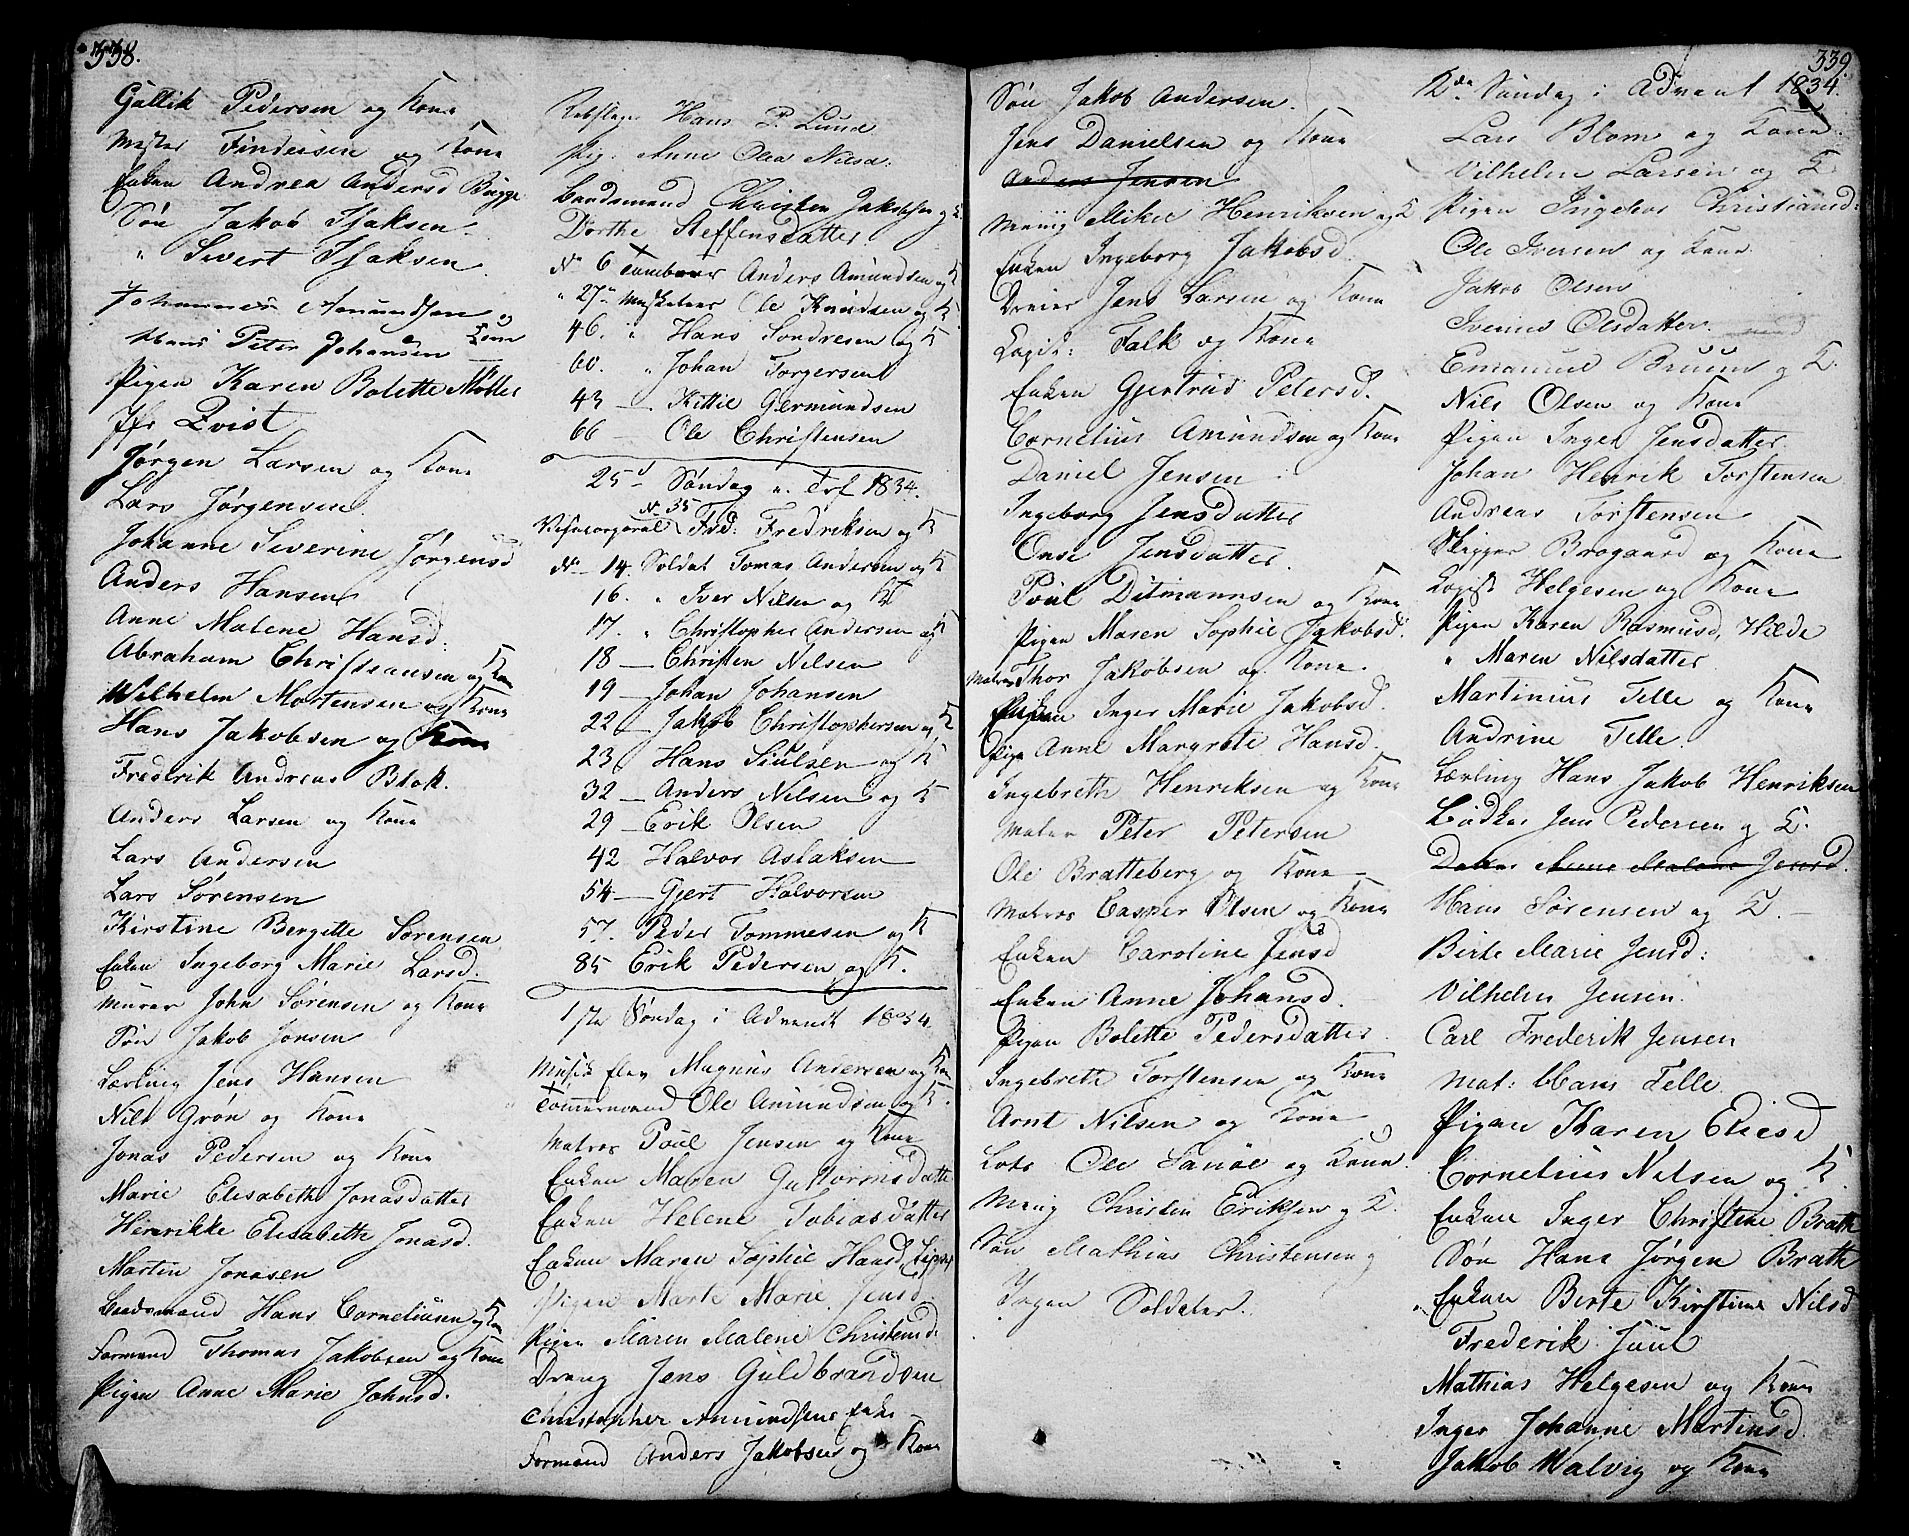 338.
Gullik Pedersen og Kone
Mester Findeisen og Kone
Enken Andrea Andersd Brygge
Søn Jakob Isaksen
" Sivert Isaksen
Johannes Amundsen og Kone
Hans Peter Johansen
Pigen Karen Bolette Møller
Jfr Qvist
Jørgen Larsen og Kone
Lars Jørgensen
Johanne Severine Jørgensd
Anders Hansen
Anne Malene Hansd:
Abraham Christiansen og Kone
Wilhelm Mortensen og Kone
Hans Jakobsen og Kone
Fredrik Andreas Blok.
Anders Larsen og Kone
Lars Andersen
Lars Sørensen
Kirstine Bergitte Sørensen
Enken Ingeborg Marie Larsd.
Murer John Sørensen og Kone
Søn Jakob Jonsen
Lærling Jens Hansen
Nils Grøn og Kone
Jonas Pedersen og Kone
Marie Elisabeth Jonasdatter
Henrikke Elisabeth Jonasd.
Martin Jonasen
Baadsmand Hans Corneliusen og Kone
Formand Thomas Jakobsen og Kone
Pigen Anne Marie Johnsd.
Rebslager Hans P. Lund
Pig. Anne Olea Nilsd:
Baadsmand Christen Jakobsen og K
Dorthe Steffensdatter
No 6 Tambour Anders Amundsen og K
" 27 " Musketeer Ole Knudsen og K
46. " Hans Sondresen og K
60. " Johan Torgersen
43 — Kittil Germundsen
66 — Ole Christensen
25d Søndag e. Tref 1834.
Visecorporal No 35 Fred: Fredriksen og K
No 14. Soldat Tomas Andersen og K
16. " Iver Nilsen og K
17. " Christopher Andersen og K
18 — Christen Nilsen
19 — Johan Johansen
22 — Jakob Christophersen og K
23 — Hans Siulsen og K
32 — Anders Nilsen og K
29 — Erik Olsen
42 Halvor Aslaksen
54 — Gjert Halvorsen
57. Peder Tommesen og K
85 Erik Pedersen og K.
1ste Søndag i Advendt 1834.
Musik Elev Magnus Andersen og Kone
Tømmermand Ole Amundsen og K.
Matros Poul Jensen og Kone
Enken Maren Guttormsdatter
Enken Helene Tobiasdatter
Enken Maren Sophie Hansd,
Pigen Marte Marie Jensd.
Pigen Maren Malene Christensd:
Dreng Jens Guldbrandsen
Christopher Amundsens Enke
Formand Anders Jakobsen og Kone
339.
Søn Jakob Andersen.
Jens Danielsen og Kone
Anders Jensen
Menig Mikel Henriksen og K
Enken Ingeborg Jakobsd.
Dreier Jens Larsen og Kone
Capit: Falk og Kone
Enken Gjertrud Petersd.
Cornelius Amundsen og Kone
Daniel Jensen
Ingeborg Jensdatter
Jensdatter
Poul Ditmannsen og Kone
Pigen Maren Sophie Jakobsd.
Matros Thor Jakobsen og Kone.
Enken Inger Marie Jakobsd.
Pige Anne Margrete Hansd.
Ingebreth Henriksen og Kone
Matros Peter Petersen
Ole Bratteberg og Kone
Matros Casper Olsen og Kone
Enken Caroline Jensd
Enken Anne Johansd.
Pigen Bolette Pedersdatter
Ingebreth Torstensen og Kone
Arnt Nilsen og Kone
Lods Ole Sanøe og Kone.
Menig Christen Eriksen og K.
Søn Mathias Christensen
Ingen Soldater.
2den Søndag i Advent 1834.
Lars Blom og Kone.
Vilhelm Larsen og K
Pigen Ingebor Christiansd:
Ole Iversen og Kone
Jakob Olsen
Iverine Olsdatter.
Emanuel Bruun og K.
Nils Olsen og Kone
Pigen Inger Jensdatter
Johan Henrik Torstensen
Andreas Torstensen
Skipper Brogaard og Kone
Helgesen og Kone
Pigen Karen Rasmusd, Hilde
" Maren Nilsdatter
Martinius Telle og Kone
Andrine Telle.
Lærling Hans Jakob Henriksen
Bødker Jens Pedersen og K.
Datter Anne Malene Jensd.
Hans Sørensen og K.
Birte Marie Jensd:
Vilhelm Jensen.
Carl Frederik Jensen
Mat: Hans Telle.
Pigen Karen Eliesd
Cornelius Nilsen og K.
Enken Inger Christine Brath
Søn Hans Jørgen Brath
Enken Birte Kirstine Nilsd
Frederik Juul
Mathias Helgesen og Kone
Inger Johanne Martinsd.
Jakob Malvig og Kone